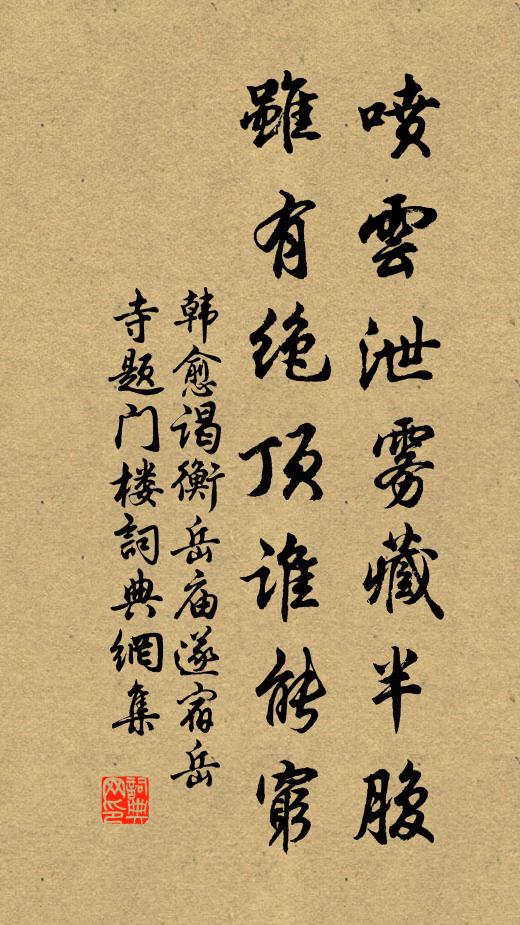 喷雲泄雾藏半腹
雖有绝顶谁能窮
韩愈谒衡岳庙遂宿岳
寺题门楼詞典網集
詞典
网印